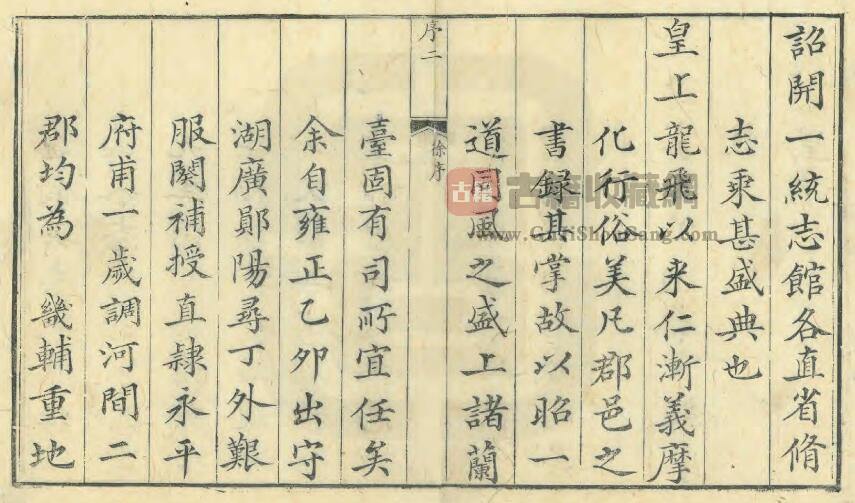 詔開一統志館各直省脩
志乘甚盛典也
皇上龍飛以来仁漸義摩
化行俗美凡郡邑之
書録其掌故以昭一
道同風之盛上諸蘭
序二
徐序
臺固有司所宜任矣
余自雍正乙卯出守
湖廣鄖陽尋丁外艱
服闋補授直隸永平
府甫一歲調河間二
郡均為 畿輔重地
古籍 古籍收藏網
www.GuJiShouCang.com